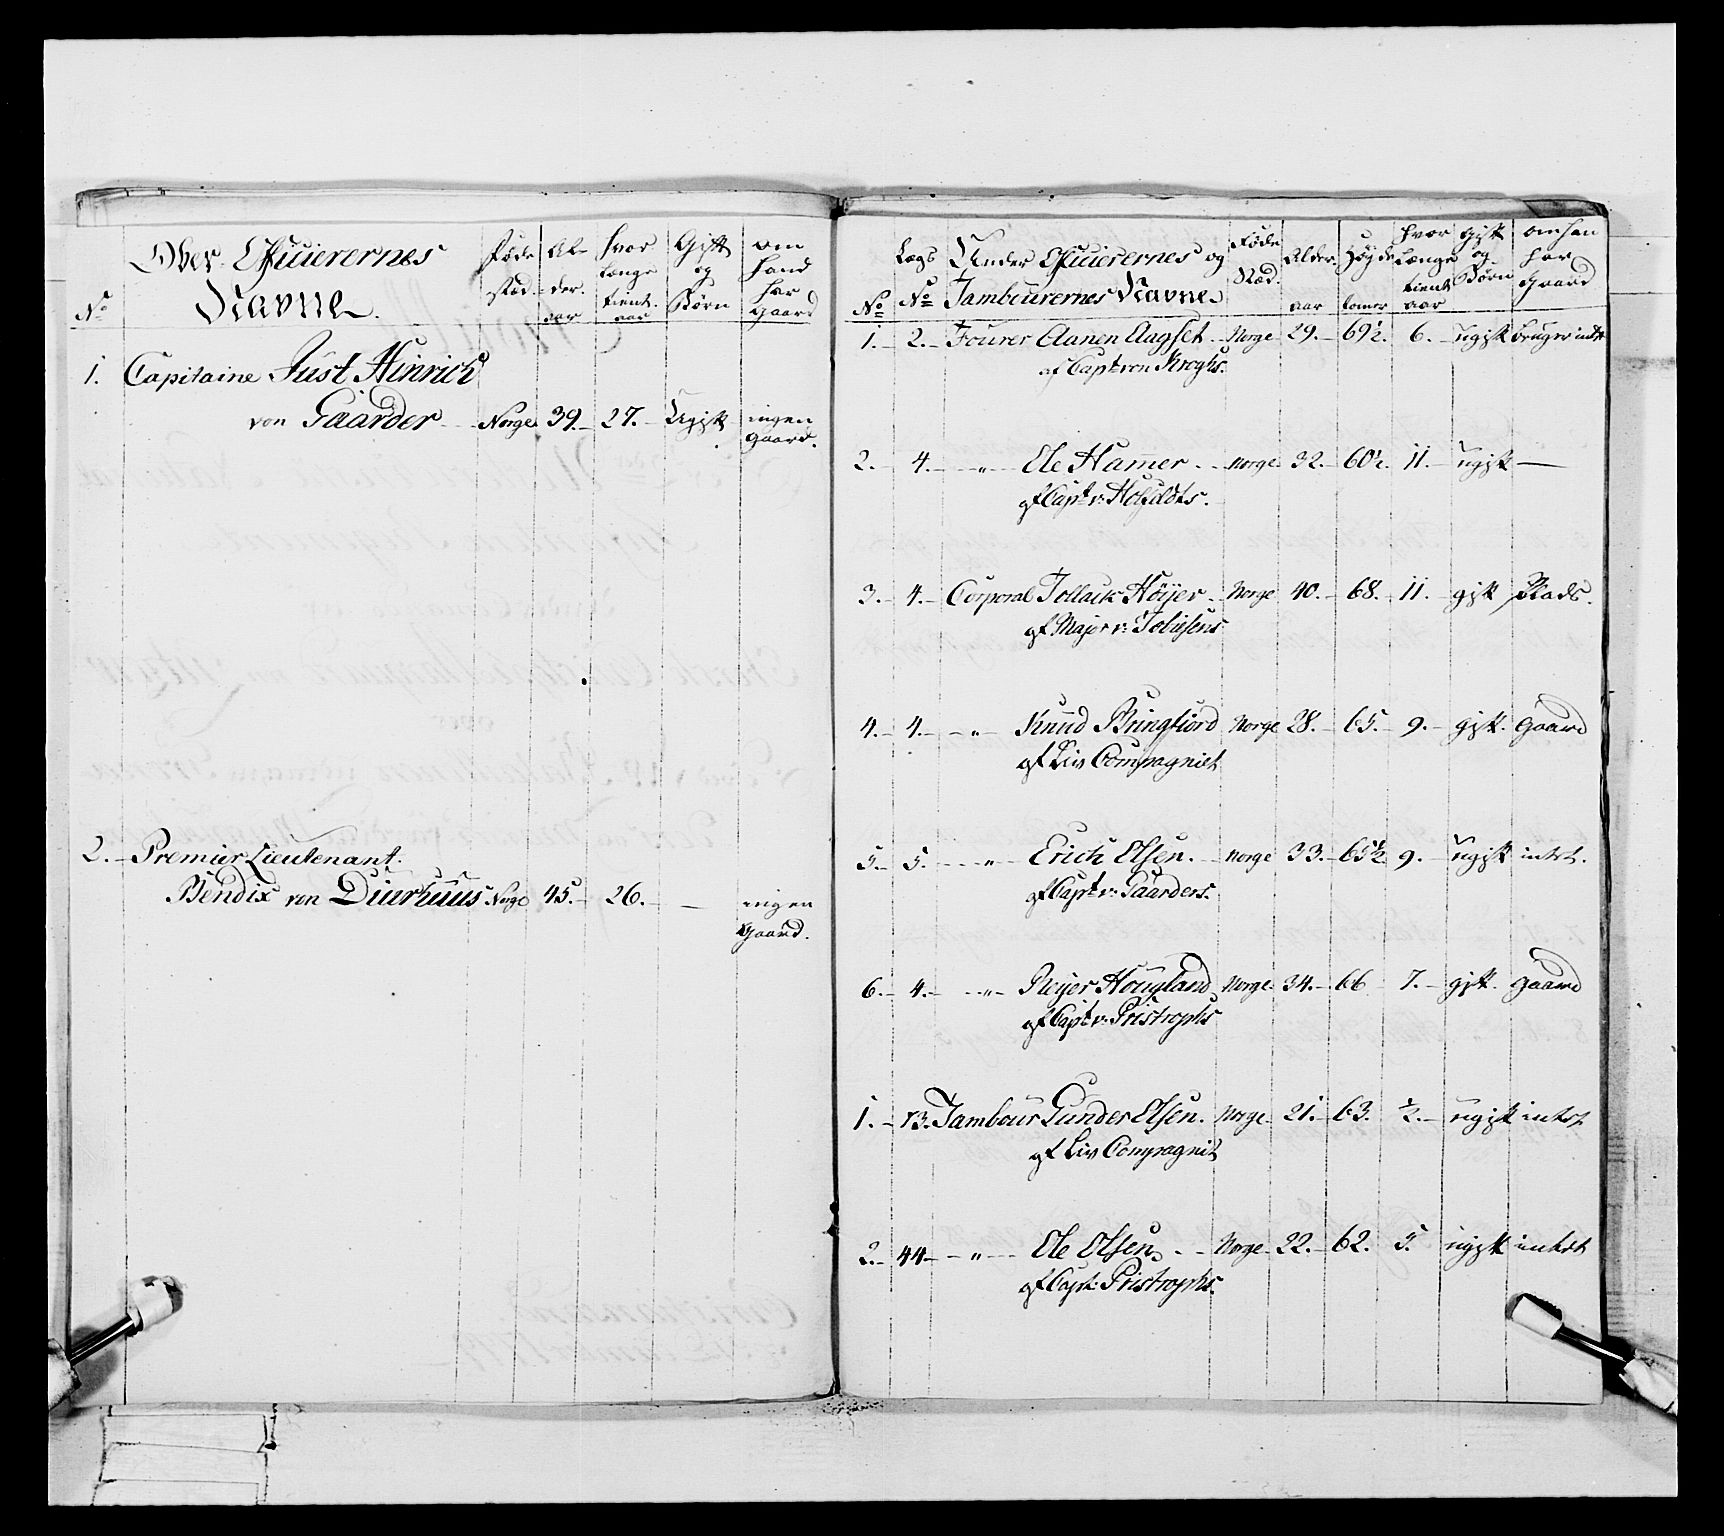 No
Over Officierernes
Navne
Føde
Stæd.
Al-
der.
aar
hvor
længe
tient.
aar
Gift
og
Børn
om
hand
har
gaard
1. Capitaine Just Hinrich
von Gaarder Norge 39. 27. Ugift ingen
gaard.
2. Premier Lieutenant.
Bendix von Diurhuus Norge 45. 26. — ingen
gaard.
No
Lægs
No
Under Officierernes og
Tambourernes Navne
Føde
Stæd.
Alder
aar
Høyde
tomer
hvor
længe
tient
aar
gift
og
Børn
om han
har
gaard
1. 2. Fourer Aanen Aagset Norge 29. 69½. 6. ugift bruger intet
af Capt von Kroghs.
2. 4. — " — Ole Hamer Norge 32. 60½. 11. ugift —
af Capt v: Holfeldts.
3. 4. Corporal Tollack Höyer Norge 40. 68. 11. gift Plads.
af Major v: Tobiesens
4. 4. — " — Knud Bringsiord Norge 28. 65. 9. gift. gaard
af Liv Compagniet
5. 5. — " — Erich Olsen. Norge 33. 65½ 9. ugift intet.
af Capt v: Gaarders.
6. 4. — " — Reyer Hougland Norge 34. 66 7. gift. gaard
af Capt v: Pristrophs
1. 13. Tambour Gunder Olsen. Norge 21. 63. ½. ugift intet
af Liv Compagnit
2. 44 — " — Ole Olsen Norge 22. 62. 5. ugift intet
af Capt: Pristrophs.